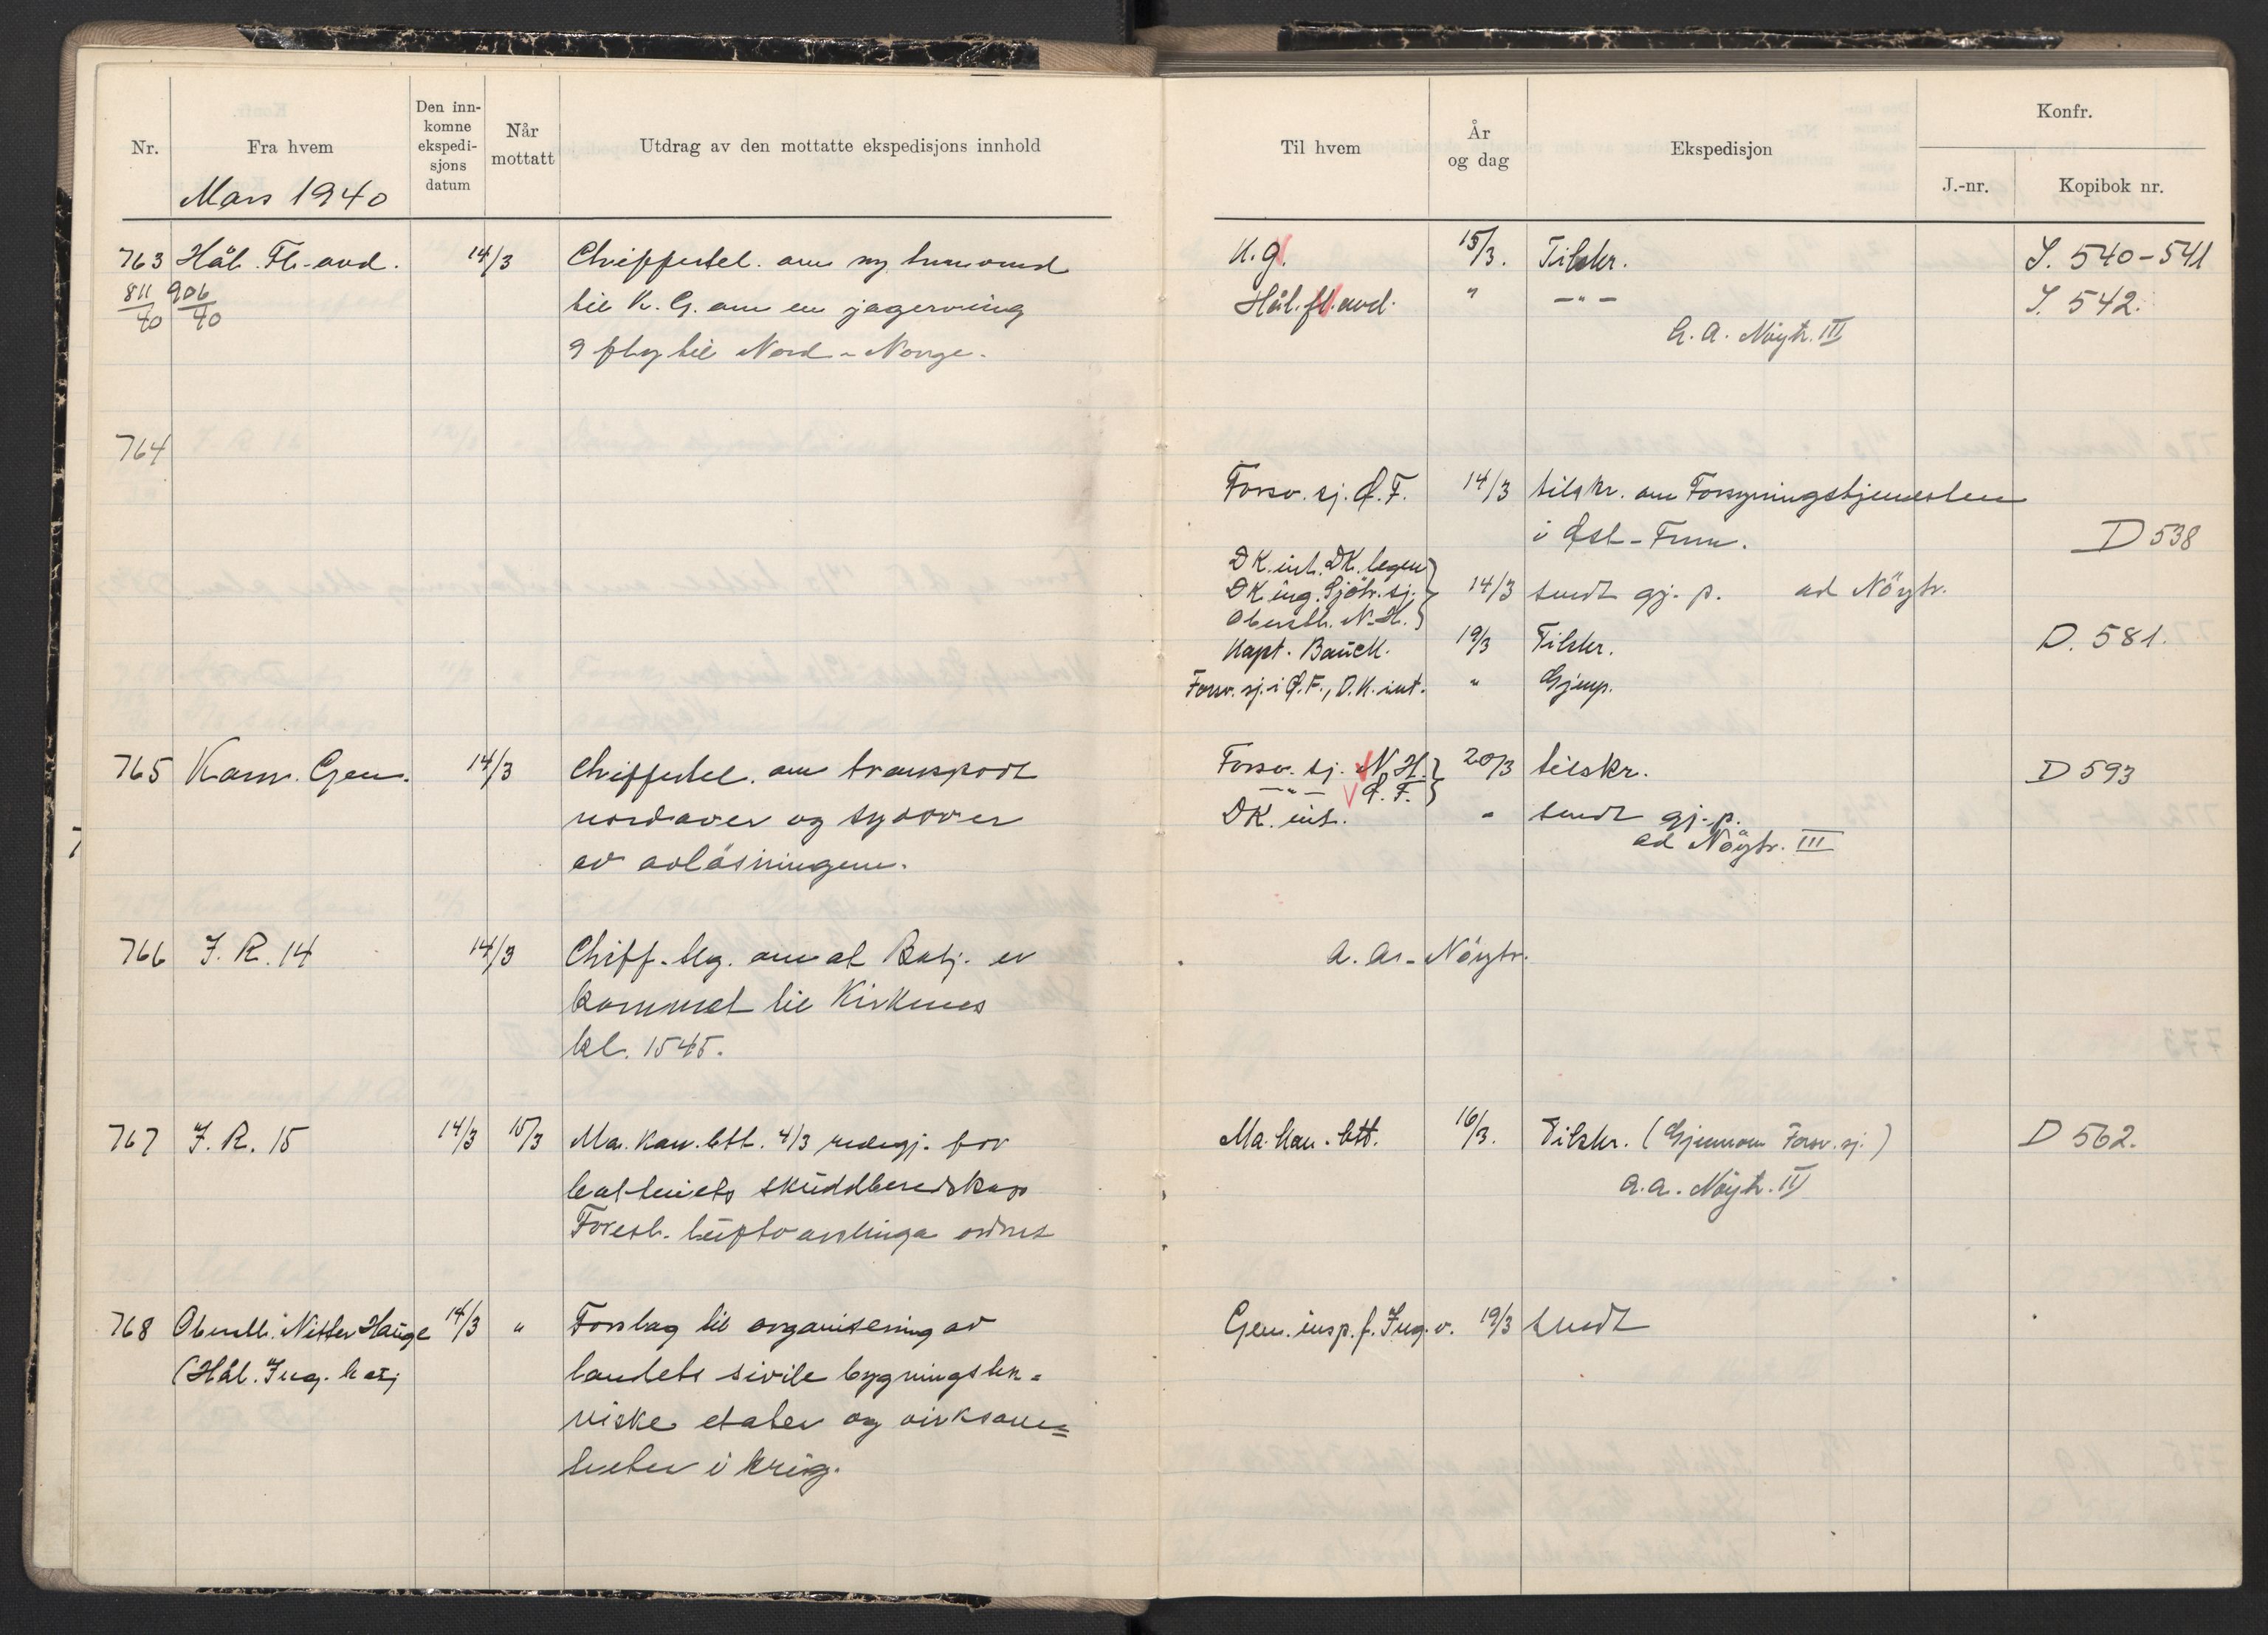 Nr.
Fra hvem
Den inn-
komne
ekspedi-
sjons
datum
Når
mottatt
Utdrag av den mottatte ekspedisjons innhold
Mars 1940
763 Hål. Fl-avd. 14/3 Chiffertel. om ny
811/40 906/40 til K. G. om en jagerving
9 fly til Nord-Norge.
764
765 Kom. Gen. 14/3 Chiffertel. om transport
nordover og sydover
av avløsningene.
766 I. R. 14 14/3 Chiff. tlg. om at Batj. er
kommet til Kirkenes
kl. 1545.
767 I. R. 15 14/3 15/3 Ma. kan. btt. 4/3 redegj. for
batteriets skuddberedskap
Foresl. ordnet
768 Oberstl. Nitter Hauge 14/3 " Forslag til organisering av
(Hål. Ing. batj landets sivile bygningstek-
niske etater og virksom=
heter i krig.
Til hvem
År
og dag
Ekspedisjon
Konfr.
J.-nr.
Kopibok nr.
K.G. 15/3. Tilskr. S. 540-541
Hål. fl. avd. " —"— S. 542.
a. a. Nøytr. III
Forsv. sj. Ø. F. 14/3 tilskr. om Forsyningstjenesten
i Øst-Finnm. D 538
DK. int. DK. legen
DK ing. Sjöv. sj. 14/3 sendt gj. p. ad Nöytr.
Oberstl. N-H.
Kapt. Bauck. 19/3 Tilskr. D. 581.
Forsv. sj. i Ø.F., D.K. int. " Gjenp.
Forsv. sj. N.H. 20/3 tilskr. D 593
—"— Ø. F.
DK. int. " sendt gj. p.
ad Nöytr. III
a. a. Nöytr.
Ma. kan. btt. 16/3. Tilskr. (Gjennom Forsv. sj.) D 562.
a. a. Nøytr. III
Gen. insp. f. Ing. v. 19/3 sendt